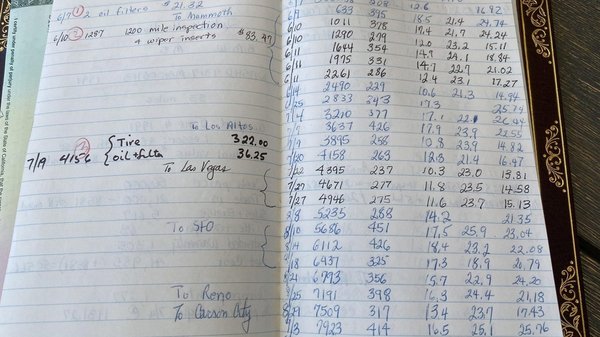 6/7 1 2 oil filters $21.32
To Mammoth
6/10 2 1287 1200 mile inspection $83.47
4 wiper inserts
To Los Altos
7/19 4156 2 Tire 322.00
oil + filter 36.25
To Las Vegas
To SFO
To Reno
To Carson City
6/9 633 395
6/10 1011 378 18.5 21.4 24.74
6/10 1290 279 17.4 21.7 24.24
6/11 1644 354 12.0 23.2 15.11
6/11 1975 331 14.7 24.1 18.84
6/11 2261 286 14.7 22.7 21.02
6/14 2490 229 12.4 23.1 17.27
2833 343 10.6 21.3 14.94
7/4 3210 377 17.3
7/9 3637 426 17.1 22.1 26.44
7/19 3895 258 17.9 23.9
7/20 4158 263 10.8 23.9 14.82
7/22 4395 237 12.3 21.4 16.47
7/27 4671 277 10.3 23.0 13.81
7/27 4946 275 11.8 23.5 14.58
5235 288 11.6 23.7 15.13
8/10 5686 451 14.2 21.35
8/14 6112 426 17.5 25.9 23.04
6437 325 18.4 23.2 22.08
6793 356 17.3 18.9 20.79
7191 398 15.7 22.9 24.20
7509 317 16.3 24.4 21.18
7923 414 13.4 23.7 17.43
16.5 25.1 25.76